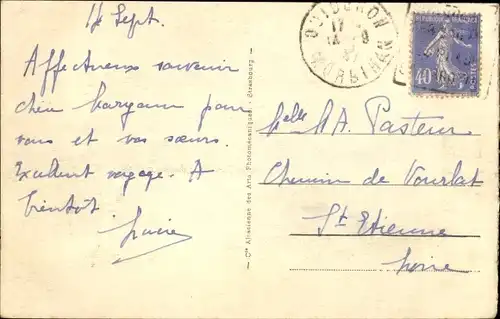 14 Sept.
Affectueux souvenir
chère Margaine pour
vous et vos sœurs.
Excellent voyage. A
bientôt
Lucie
Cie Alsacienne des Arts Photomécaniques - Strasbourg
QUIBERON
17
14 - 9
MORBIHAN
40
Melle M A. Pasteur
Chemin de Vourlat
St Etienne
Loire